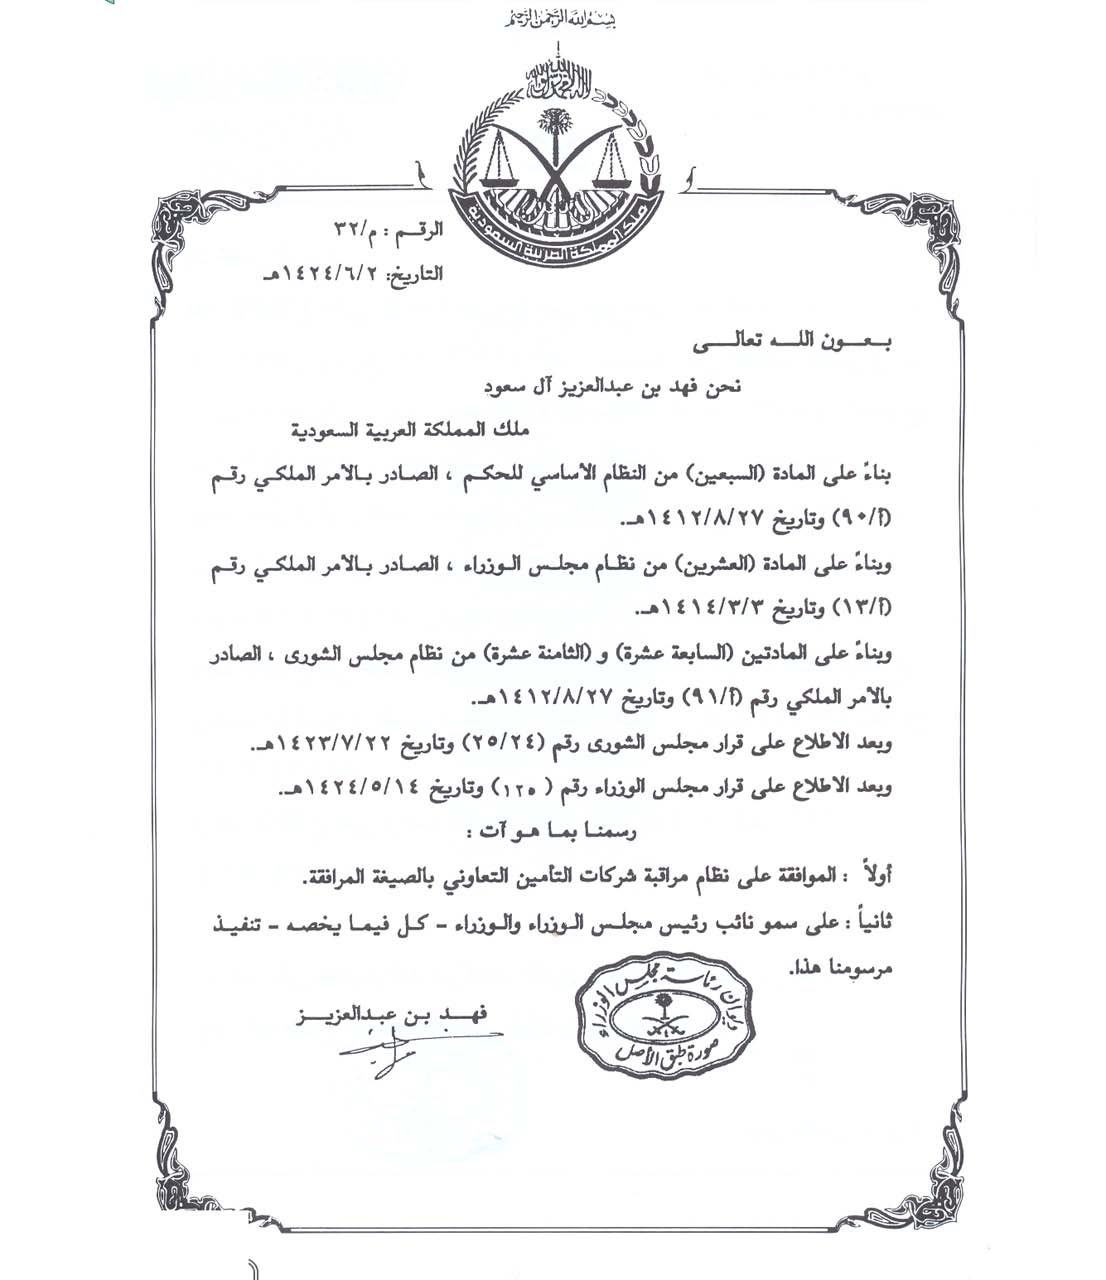 بسم الله الرحمن الرحيم
لا إله إلا الله محمد رسول الله
ملك المملكة العربية السعودية
الرقم : م/٣٢
التاريخ: ١٤٢٤/٦/٢هـ
بعون الله تعالى
نحن فهد بن عبدالعزيز آل سعود
ملك المملكة العربية السعودية
بناءً على المادة (السبعين) من النظام الأساسي للحكم ، الصادر بالأمر الملكي رقم
(أ/٩٠) وتاريخ ١٤١٢/٨/٢٧هـ.
وبناءً على المادة (العشرين) من نظام مجلس الوزراء ، الصادر بالأمر الملكي رقم
(أ/١٣) وتاريخ ١٤١٤/٣/٣هـ.
وبناءً على المادتين (السابعة عشرة) و (الثامنة عشرة) من نظام مجلس الشورى ، الصادر
بالأمر الملكي رقم (أ/٩١) وتاريخ ١٤١٢/٨/٢٧هـ.
وبعد الاطلاع على قرار مجلس الشورى رقم (٢٥/٢٤) وتاريخ ١٤٢٣/٧/٢٢هـ.
وبعد الاطلاع على قرار مجلس الوزراء رقم ( ١٢٥) وتاريخ ١٤٢٤/٥/١٤هـ.
رسمنا بما هو آت :
أولاً : الموافقة على نظام مراقبة شركات التأمين التعاوني بالصيغة المرافقة.
ثانياً : على سمو نائب رئيس مجلس الوزراء والوزراء - كل فيما يخصه - تنفيذ
مرسومنا هذا.
ديوان رئاسة مجلس الوزراء
صورة طبق الأصل
فهد بن عبدالعزيز